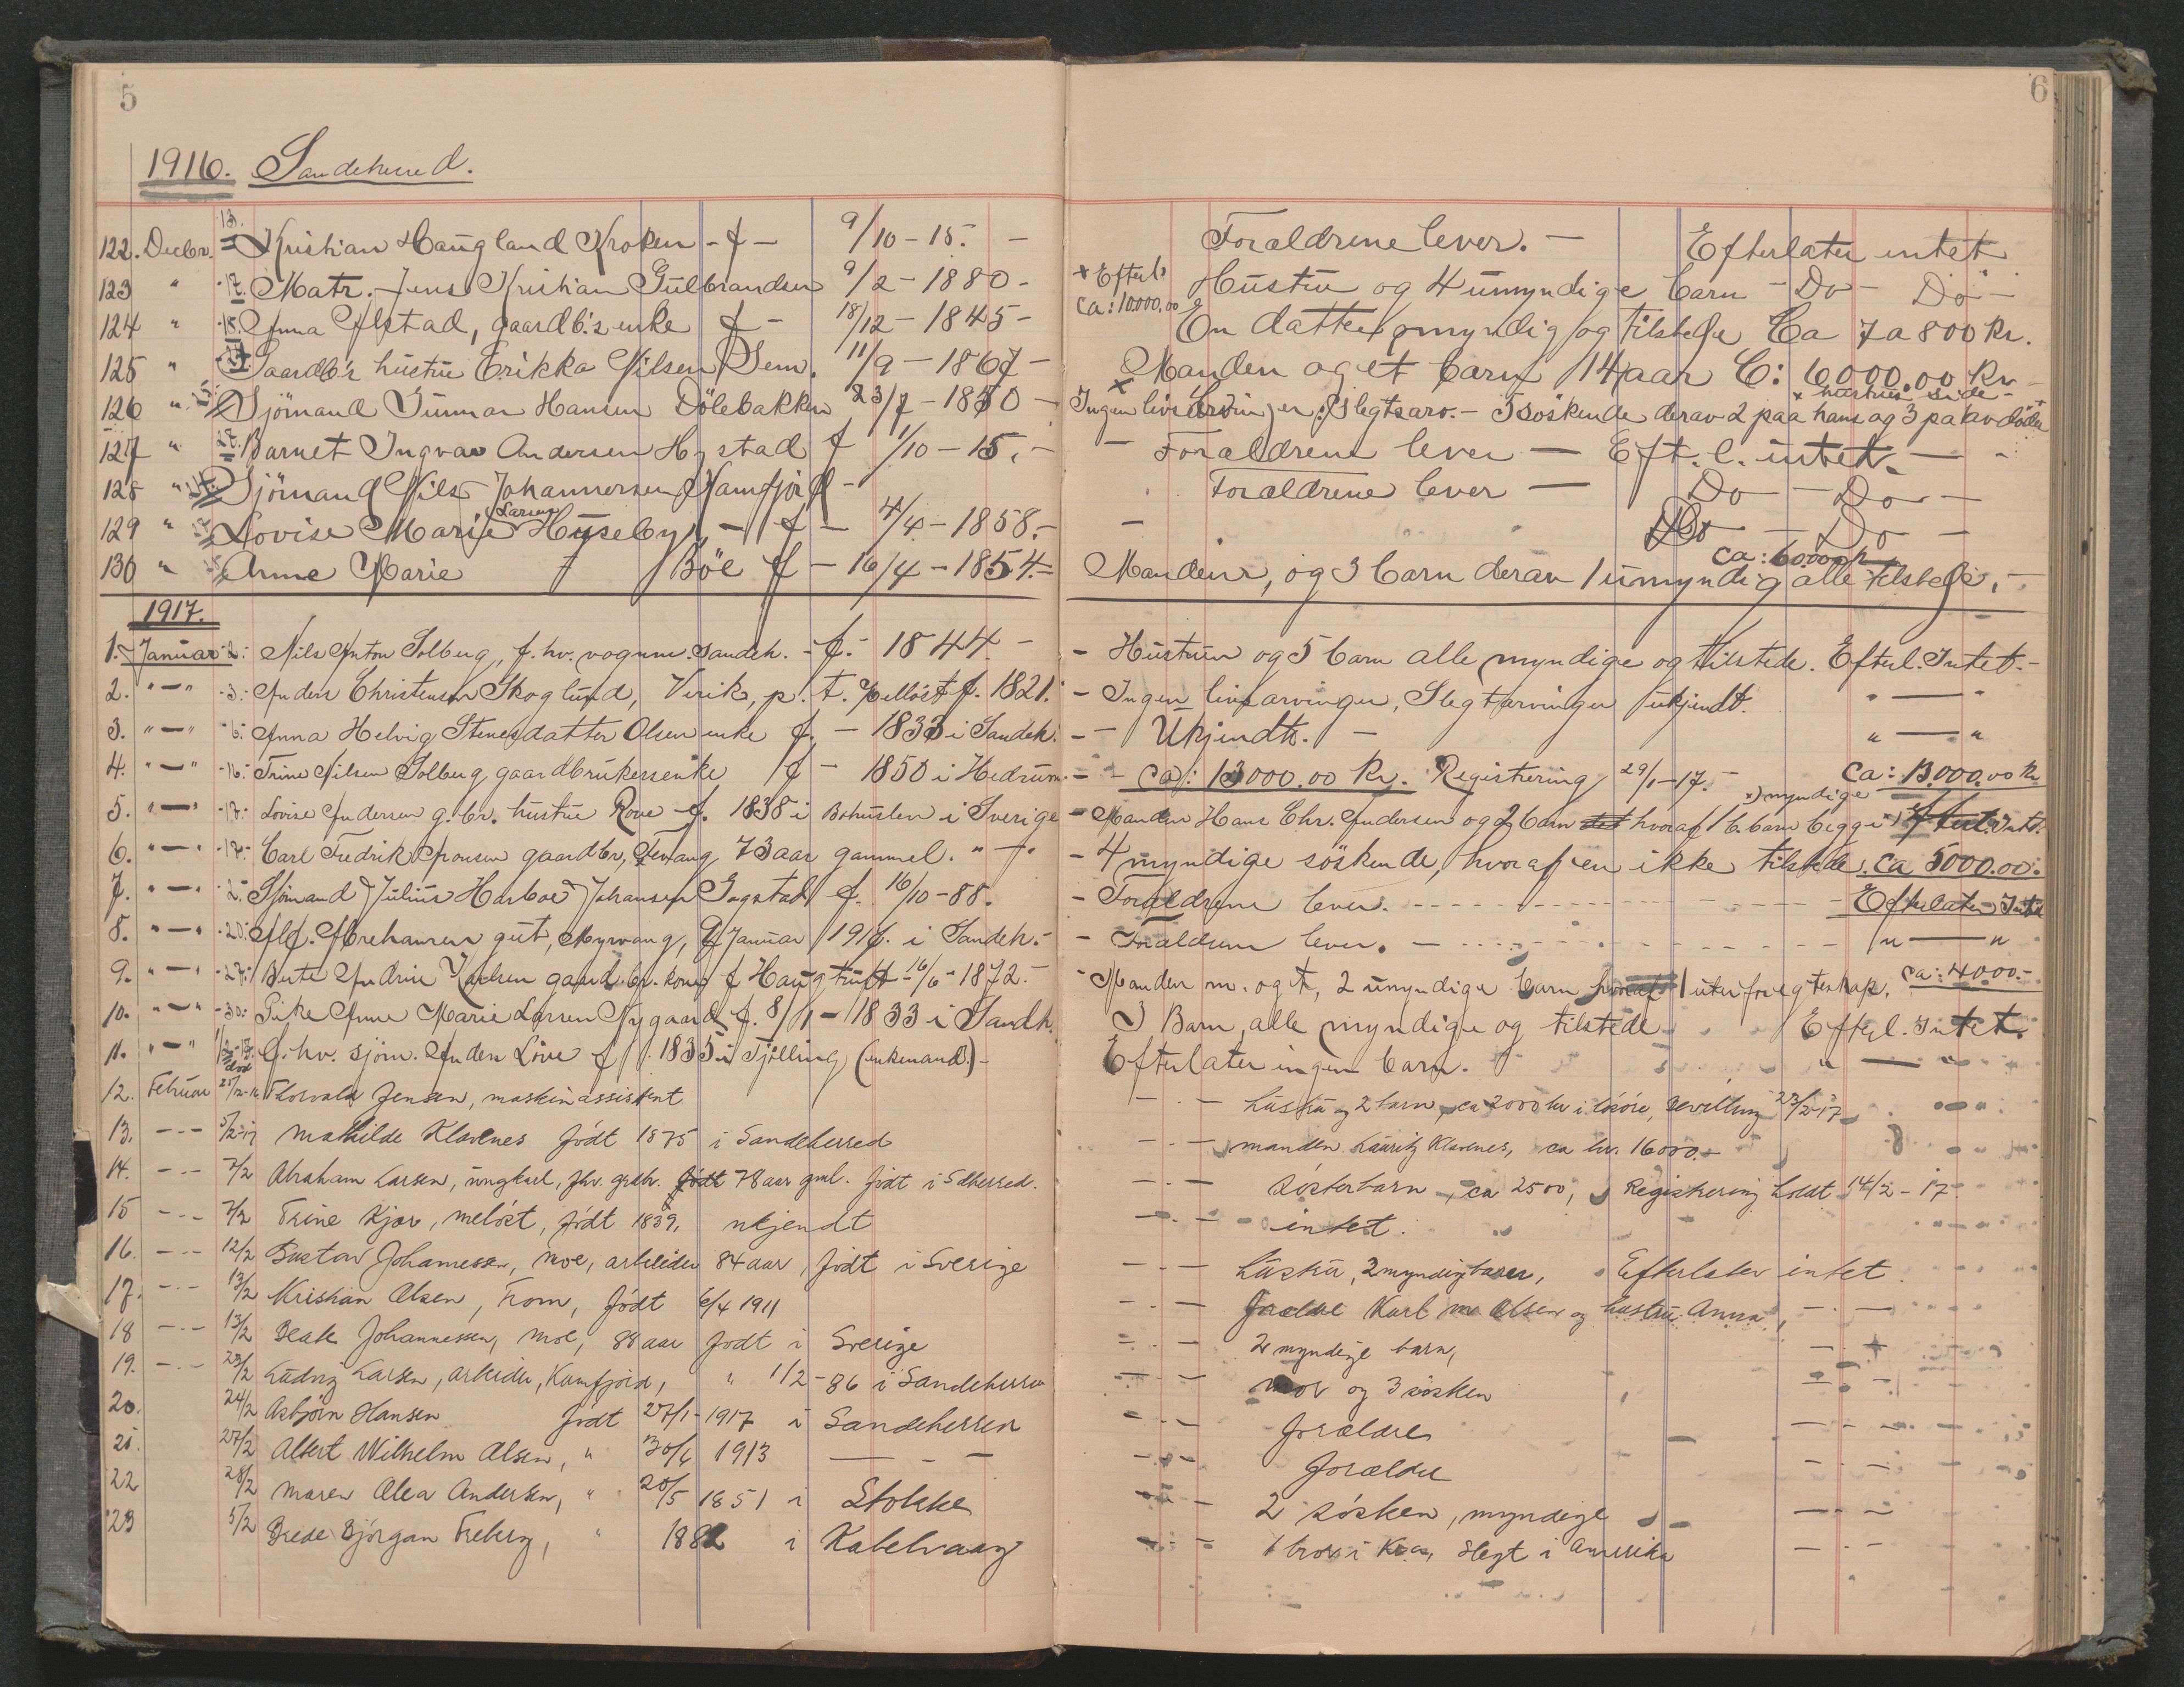 5
6
1916. Sandeherred.
122. Decbr. 13. Kristian Haugland Kroken - f - 9/10 - 15. - Forældrene lever. - Efterlater intet
123 " 17. Matr. Jens Kristian Gulbrandsen 9/2 - 1880 - Hustru og 4 umyndige barn - Do - Do -
x Efterl.
ca: 10000,00
124 " 18. Anna Alstad, gaardb.'s enke f - 18/12 - 1845 - En datter myndig og tilstede Ca 7 a 800 Kr.
125 " Gaardb's hustru Erikka Nilsen Sem. 11/9 - 1867 - Manden og et barn 14 aar C: 6000.00 Kr -
x hustrues side -
126 " Sjömand Gunnar Hansen Dölebakken 23/7 - 1880 - Ingen livsarvinger: Slegtsarv. - 5 söskende derav 2 paa hans og 3 pa avdöde
127 " 17. Barnet Ingvar Andersen Hystad f 1/10 - 15. - Forældrene lever - Eft. l. intet. -
128 " Sjömand Nils Johannersen Kamfjord - Forældrene lever - Do - Do -
Larsen
129 " Lovise Marie Huseby, - f - 4/4 - 1858. - Do - Do -
ca: 6000 kr
130 " Anne Marie Böe f - 16/4 - 1854. - Manden, og 3 barn derav 1 umyndig alle tilstede. -
1917.
1. Januar 2. Nils Anton Solberg, f. hv. vognm. Sandeh. - f. - 1844 - - Hustruen og 5 barn alle myndige og tilstede. Efterl. Intet. -
2. " - " 3. Anders Christensen Skoglund, Virik, p. t. Mellöst f. 1821. - Ingen livsarvinger, Slegtarvinger ukjendt. " - "
3. " - " 6. Anna Helvig Stenersdatter Olsen enke f. - 1833 i Sandeh. - - Ukjendt. - " - "
4. " - " 16. Trine Nilsen Solberg gaardbrukersenke f - 1850 i Hedrum. - - ca: 13000.00 Kr. Registrering 29/1 - 17. - Ca: 13.000.00 Kr
x) myndige
5. " - " 17. Lovise Andersen g. br. hustru Rove f. 1838 i Bohuslen i Sverige - Manden Hans Chr. Andersen og 2 barn hvoraf 1 b. barn begge x) Efterl. Intet.
6. " - " 17. Carl Fredrik gaardbr, Tevang 73 aar gammel. " - - 4 myndige söskende, hvoraf en ikke tilstede. Ca 5000.00.
7. " - " 2. Sjömand Julius Harboe Johansen Gogstad f. 16/10 - 88. - Forældrene lever. - Efterlater Intet
8. " - " 20. gut, Myrvang, 9 Januar 1916. i Sandeh. - - Forældrene lever. - " - "
9. " - " 27. Berte Andrine Karlsen gaardbr. kone f Haugtuft 16/6 - 1872. - - Manden m. og t, 2 umyndige barn hvoraf 1 utenfor egteskap. Ca: 4000. -
10. " - " 30. Pike Anne Marie Larsen Nygaard f. 8/1 - 1833 i Sandh. 3 Barn, alle myndige og tilstede Efterl. Intet.
11. " - " G. hv. sjöm. Anders Löve f 1835 i Tjölling (enkemand). - Efterlater ingen barn. " - "
12. Februar Thorvald Jensen, maskinassistent - . - hustru og 2 barn, ca 2000 kr i lösöre, bevilling 23/2 - 17
13. - . - 5/2 - 17 Mathilde Klavenes födt 1875 i Sandeherred - . - manden Lauritz Klavenes, ca kr. 16000. -
14. - . - 7/2 Abraham Larsen, ungkarl, fhv. grdbr. födt 78 aar gml. födt i Sdherred. - . - Sösterbarn, ca 2500, Registrering holdt 14/2 - 17
15 - . - 7/2 Trine Kjær, melöst, födt 1839, ukjendt - . - intet.
16. - . - 12/2 Gustav Johannessen, Moe, arbeider 84 aar, födt i Sverige - . - hustru, 2 myndig barn, Efterlater intet
17. - . - 13/2 Kristian Olsen, From, födt 6/4 1911 - . - forældre Karl M Olsen og hustru Anna, - . -
18 - . - 13/2 Beate Johannessen, Moe, 88 aar födt i Sverige - . - 2 myndige barn,
19. - . - 23/2 Ludvig Larsen, arbeider, Kamfjord, " 1/2 - 86 i Sandeherred - . - mor og 3 søsken
20. 24/2 Asbjörn Hansen födt 27/1 - 1917 i Sandeherred - . - forældre - . -
21. 27/2 Albert Wilhelm Olsen, " 30/6 1913 - - - - . - forældre - . -
22 28/2 Maren Olea Andersen, " 20/5 1851 i Stokke - . - 2 søsken, myndige - . -
23 5/2 Brede Björgan Freberg, " 1882 i Kabelvaag - . - 1 bror i Kr.a, slegt i Amerika - . -